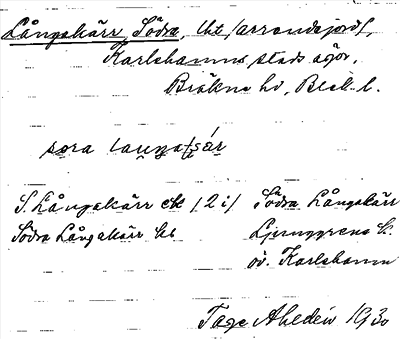 Långakärr, Södra, lht /arrendejord/,
Karlshamns stads ägor,
Bräkne hd, Blek. l.
sǫra laŋgaʃær
S. Långakärr ek /2:/ Södra Långakärr
Södra Långakärr kb Ljunggrens k.
öv. Karlshamn
Tage Ahldén 1930